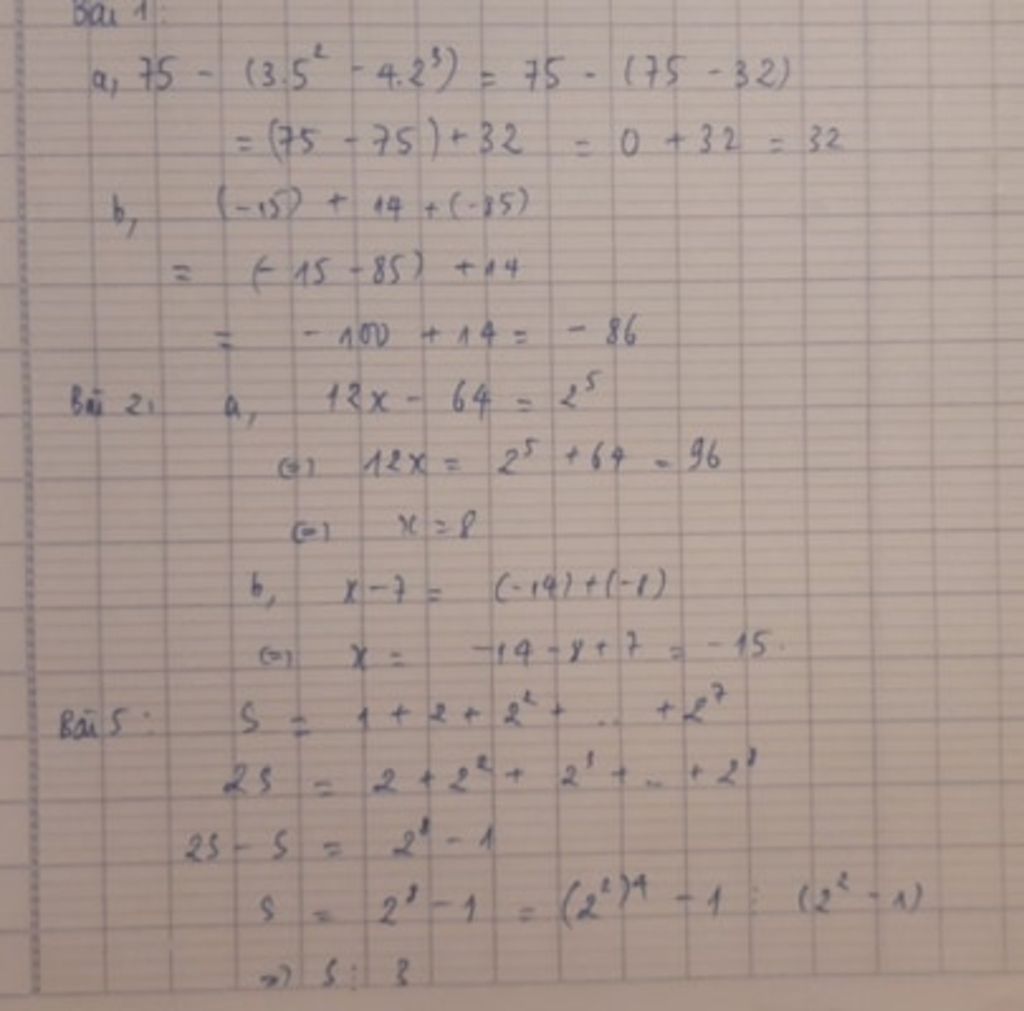 Bài 1:
a, 75 - (3.5² - 4.2³) = 75 - (75 - 32)
= (75 - 75) + 32 = 0 + 32 = 32
b, (-15) + 14 + (-85)
= (-15 - 85) + 14
= -100 + 14 = -86
Bài 2: a, 12x - 64 = 2⁵
(=) 12x = 2⁵ + 64 = 96
(=) x = 8
b, x - 7 = (-14) + (-8)
(=) x = -14 - 8 + 7 = -15.
Bài 5: S = 1 + 2 + 2² + .. + 2⁷
2S = 2 + 2² + 2³ + .. + 2⁸
2S - S = 2⁸ - 1
S = 2⁸ - 1 = (2²)⁴ - 1 ⋮ (2² - 1)
=) S ⋮ 3